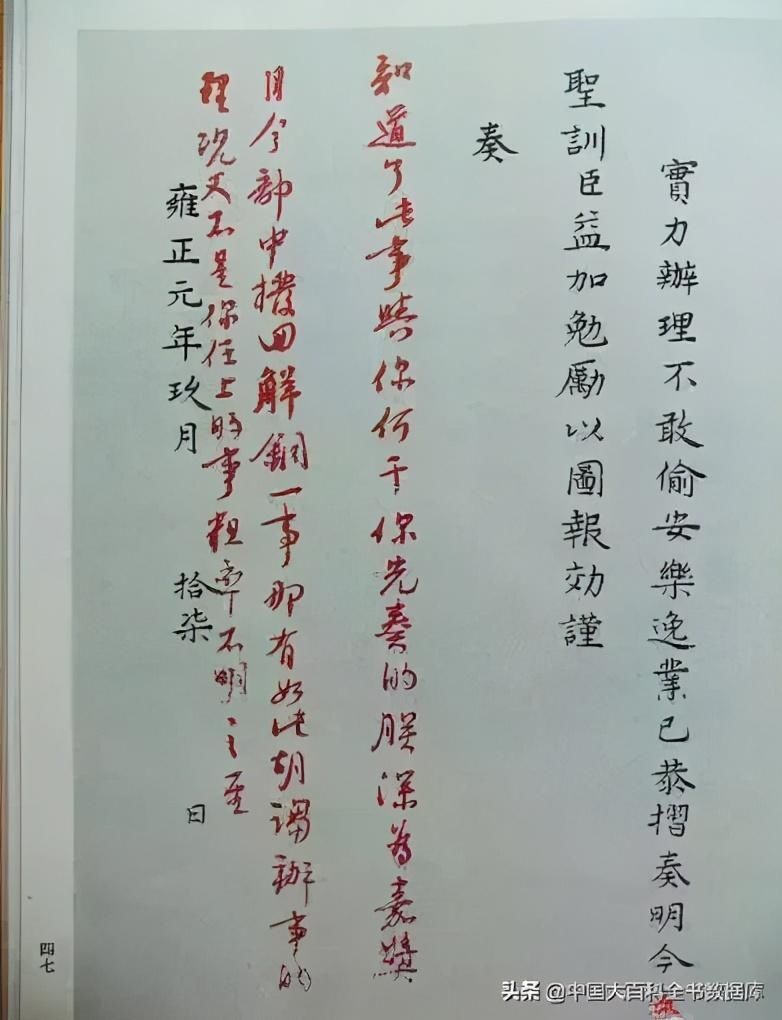 實力辦理不敢偷安樂逸業已恭摺奏明今
聖訓臣益加勉勵以圖報効謹
奏
知道了此事與你何干你先奏的朕深為嘉獎
目今部中撥回解銅一事那有如此胡謅辦事的
理況又不是你任上的事粗率不明之至
雍正元年玖月 拾柒 日
四七
头条 @中国大百科全书数据库